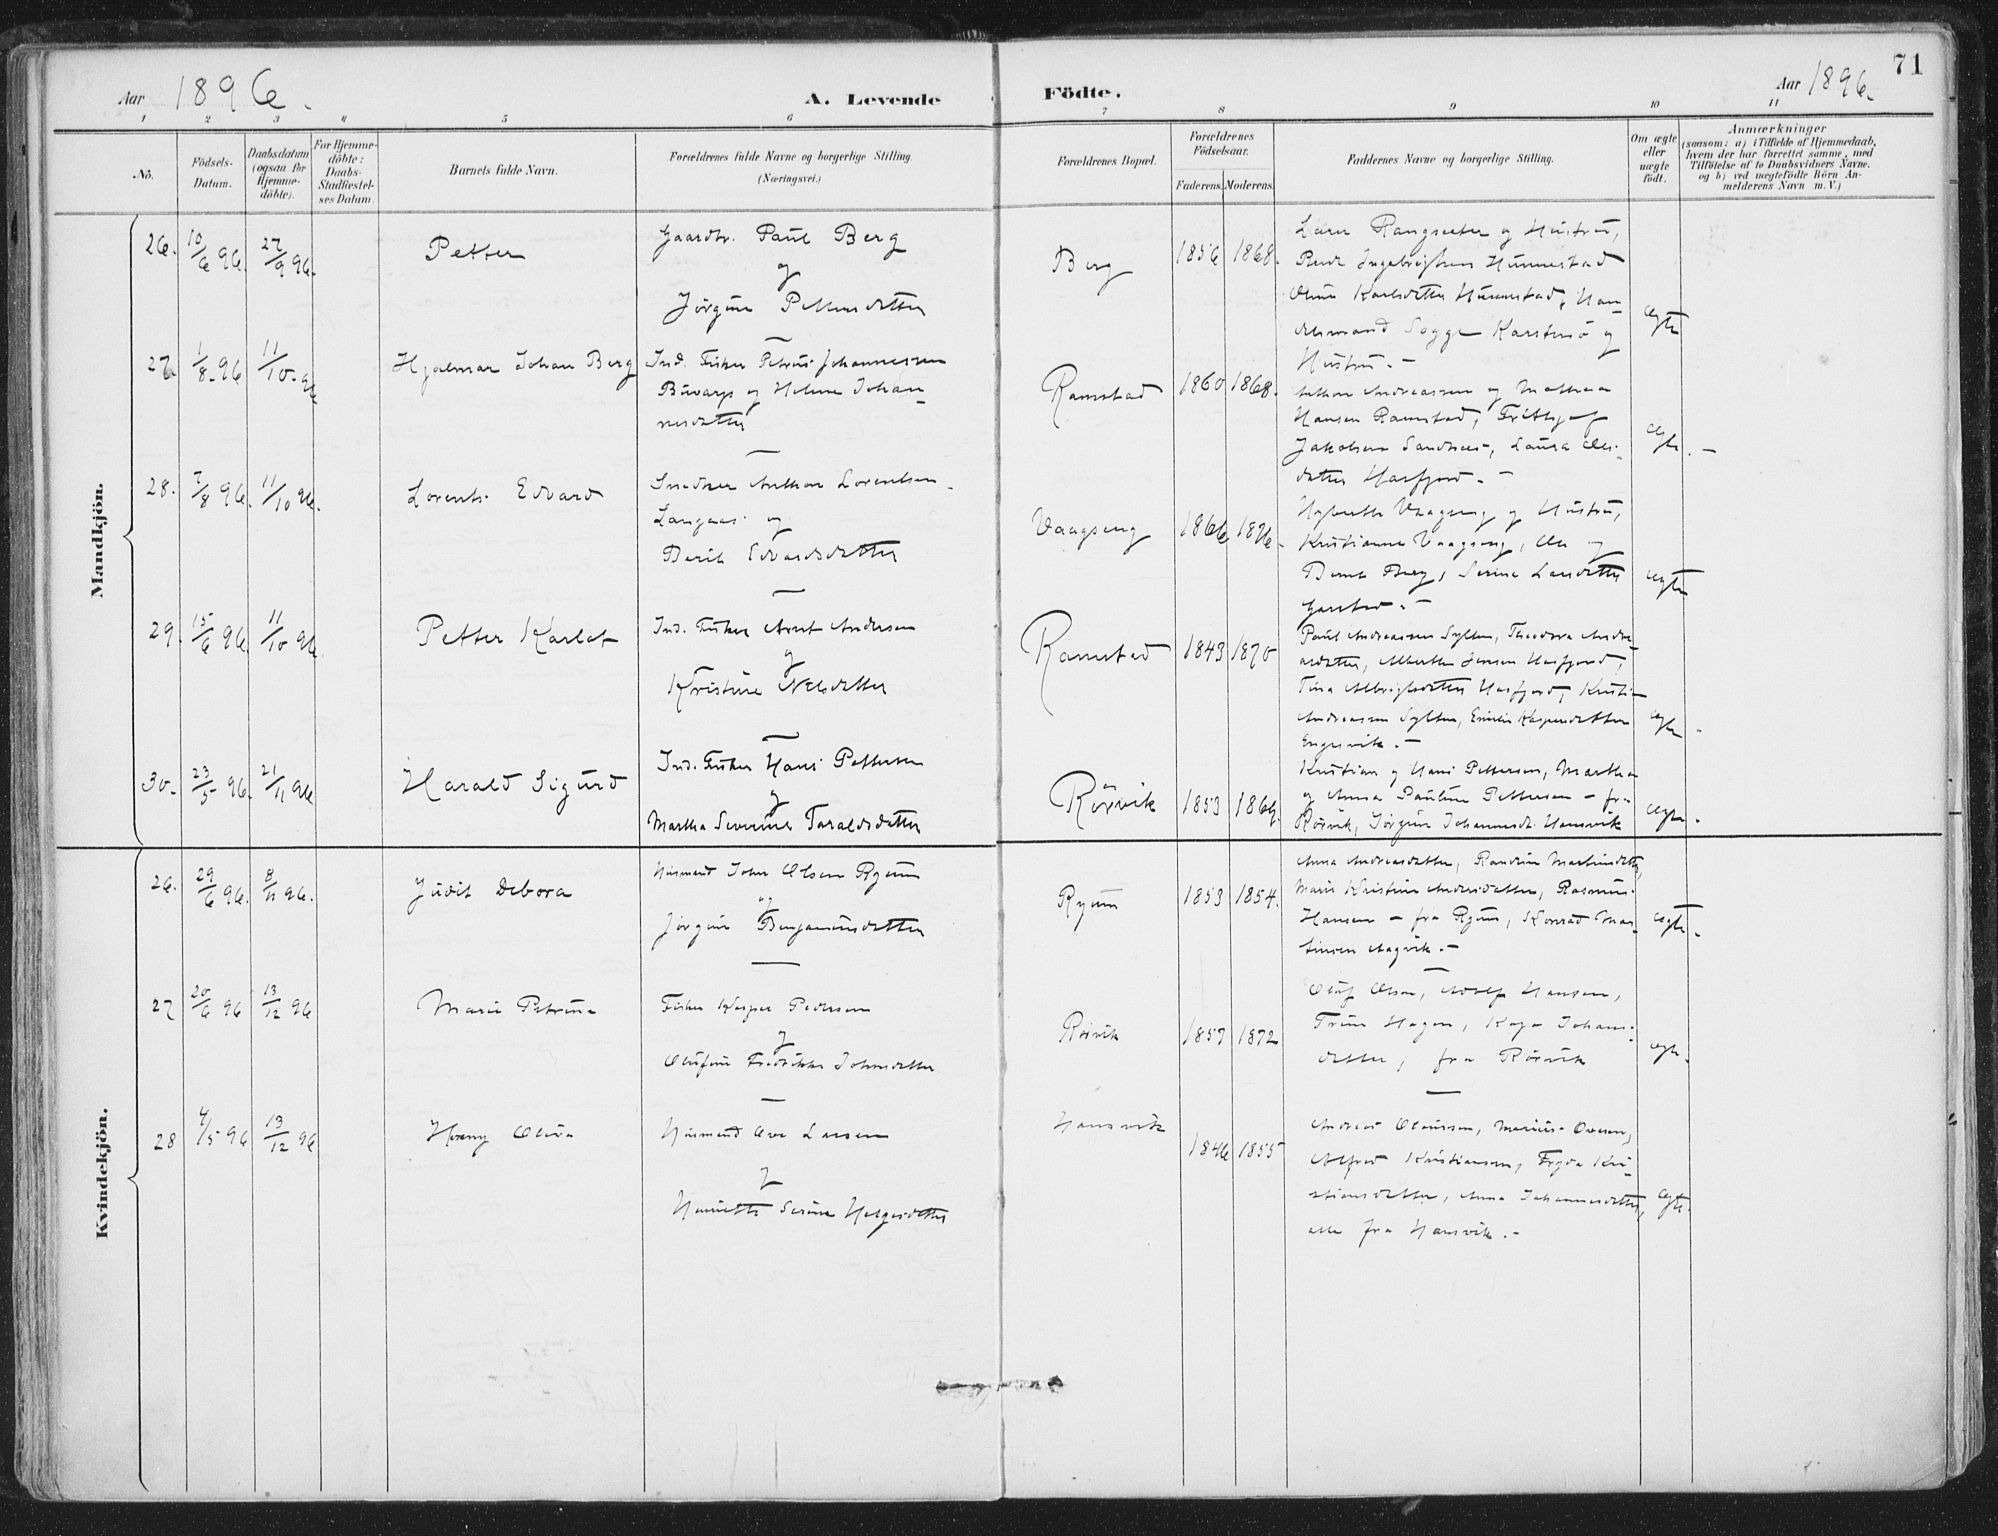 71
Aar 1896.
A. Levende
Födte.
Aar 1896.
1 2 3 4 5 6 7 8 9 10 11
No.
Födsels-
Datum.
Daabsdatum
(ogsaa for
Hjemme-
döbte).
For Hjemme-
döbte:
Daabs-
Stadfæstel-
ses Datum.
Barnets fulde Navn.
Forældrenes fulde Navne og borgerlige Stilling.
(Næringsvei.)
Forældrenes Bopæl.
Forældrenes
Födselsaar.
Faderens. Moderens.
Faddernes Navne og borgerlige Stilling.
Om ægte
eller
uægte
født.
Anmærkninger
(saasom: a) i Tilfælde af Hjemmedaab,
hvem der har forrettet samme, med
Tilföielse af to Daabsvidners Navne.
og b) ved uægtefödte Börn An-
melderens Navn m. V.)
Mandkjön.
26. 10/6 96. 27/9 96.
Petter
Gaardbr. Paul Berg
og
Jörgine Pettersdatter
Berg
1856 1868.
og Hustru,
Hunnestad
Karlsdatter Hunnestad, Han-
delsmand Sogge Karstensö og
Hustru. -
ægte
27. 1/8 96 11/10 96.
Hjalmar Johan Berg
Ind. Fisker Petrus Johannessen
Buvarp og Helene Johan-
nesdatter
Ramstad
1860 1868.
Anthon Andreassen og Mathea
Hansen Ramstad, Frithjof
Jakobsen Sandnes, Laura Ols-
datter Harfjord. -
ægte. -
28. 7/8 96. 11/10 96.
Lorents Edvard
Snedker Anthon Lorentsen
Langaas og
Berit Edvardsdatter
Vaagseng
1866 1876.
Vaagseng og Hustru,
Kristianne Vaagseng, Ole og
Bernt Berg, Serine Larsdatter
ægte
29. 15/6 96. 11/10 96.
Petter Karlot
Ind. Fisker Arnt Andersen
og
Kristine Nilsdatter
Ramstad
1843 1870
Paul Andreassen Sylten, Theodora Andre-
asdatter, Albertha Jensen Harfjord,
Tina Albrigtsdatter Harfjord, Kristian
Andreassen Sylten, Emilie Kaspersdatter
Engesvik. -
ægte.
30. 23/5 96. 21/11 96
Harald Sigurd
Ind. Fisker Hans Pettersen
og
Martha Severine Taraldsdatter
Rörvik
1853 1864.
Kristian og Hans Pettersen, Martha
og Anna Pauline Pettersen - fra
Rörvik, Jörgine Johannesd. Hansvik
ægte.
Kvindekjön.
26. 29/6 96. 8/11 96.
Judit Debora
Husmand Johan Olsen Ryum
og
Jörgine Benjaminsdatter
Ryum
1853 1854.
Anna Andreasdatter, Randine Martinsdatter,
Marie Kristine Andersdatter, Rasmus
Hansen - fra Ryum, Konrad Mar-
tinsen Aagvik. -
ægte.
27 20/6 96 13/12 96
Marie Petrine
Fisker Kasper Pedersen
og
Olufine Fredrikke Johnsdatter
Rörvik
1857 1872
Oluf Olsen, Adolf Hansen,
Trine Hagen, Kaja Johans-
datter, fra Rörvik
ægte.
28 4/5 96 13/12 96
Olivia
Husmand Ove Larsen
og
Henriette Serine Helgesdatter
Hansvik
1846 1855
Andreas Olaussen, Marius Ovesen,
Alfred Kristiansen, Kri-
stiansdatter, Anna Johannesdatter,
alle fra Hansvik. -
ægte.